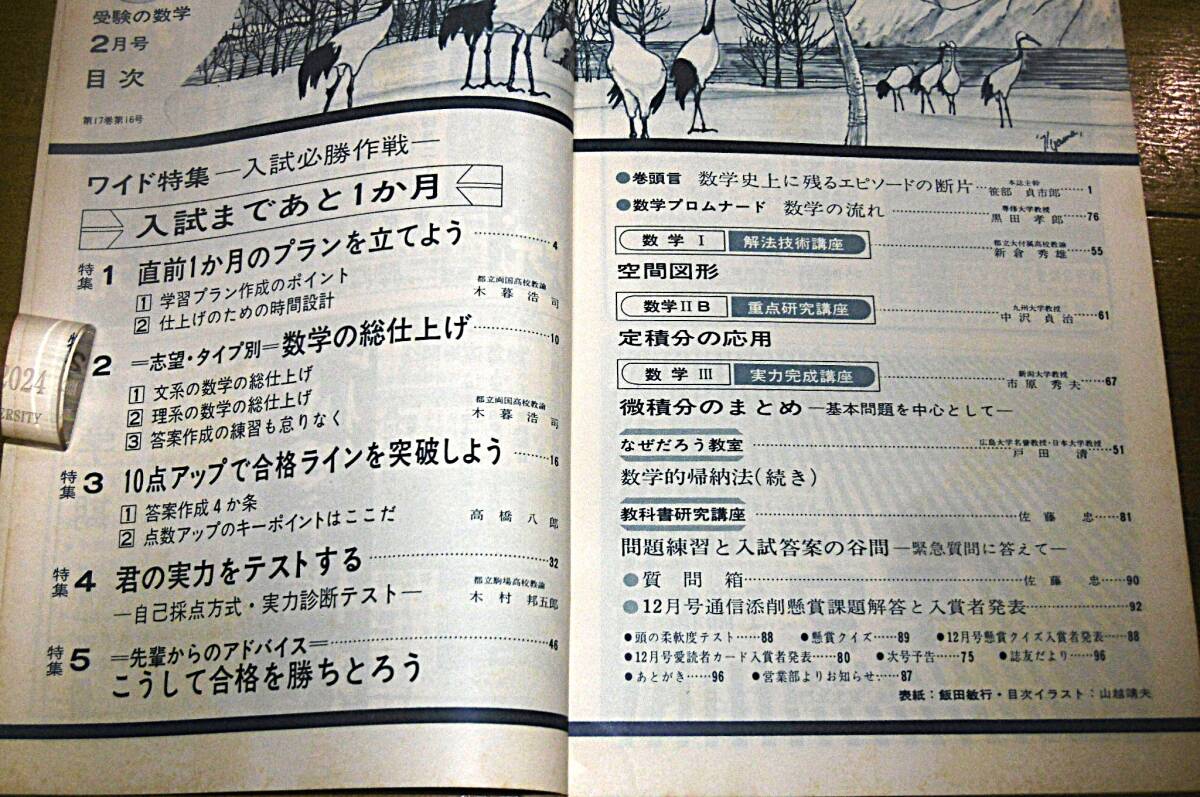 受験の数学
2月号
目次
第17巻第16号
ワイド特集―入試必勝作戦―
入試まであと1か月
特集1 直前1か月のプランを立てよう……4
1 学習プラン作成のポイント
2 仕上げのための時間設計
都立両国高校教諭
木暮浩司
2 =志望・タイプ別=数学の総仕上げ……10
1 文系の数学の総仕上げ
2 理系の数学の総仕上げ
3 答案作成の練習も怠りなく
都立両国高校教諭
木暮浩司
特集3 10点アップで合格ラインを突破しよう……16
1 答案作成4か条
2 点数アップのキーポイントはここだ
高橋八郎
特集4 君の実力をテストする……32
―自己採点方式・実力診断テスト―
都立駒場高校教諭
木村邦五郎
特集5 =先輩からのアドバイス=……46
こうして合格を勝ちとろう
2024
ERSITY
Yama
●巻頭言 数学史上に残るエピソードの断片…本誌主幹 笹部貞市郎……1
●数学プロムナード 数学の流れ……専修大学教授 黒田孝郎……76
数学Ⅰ 解法技術講座……都立大付属高校教諭 新倉秀雄……55
空間図形
数学ⅡB 重点研究講座……九州大学教授 中沢貞治……61
定積分の応用
数学Ⅲ 実力完成講座……新潟大学教授 市原秀夫……67
微積分のまとめ―基本問題を中心として―
なぜだろう教室……広島大学名誉教授・日本大学教授 戸田清……51
数学的帰納法(続き)
教科書研究講座……佐藤忠……81
問題練習と入試答案の谷間―緊急質問に答えて―
●質問箱……佐藤忠……90
●12月号通信添削懸賞課題解答と入賞者発表……92
●頭の柔軟度テスト……88 ●懸賞クイズ……89 ●12月号懸賞クイズ入賞者発表……88
●12月号愛読者カード入賞者発表……80 ●次号予告……75 ●誌友だより……96
●あとがき……96 ●営業部よりお知らせ……87
表紙：飯田敏行・目次イラスト：山越靖夫